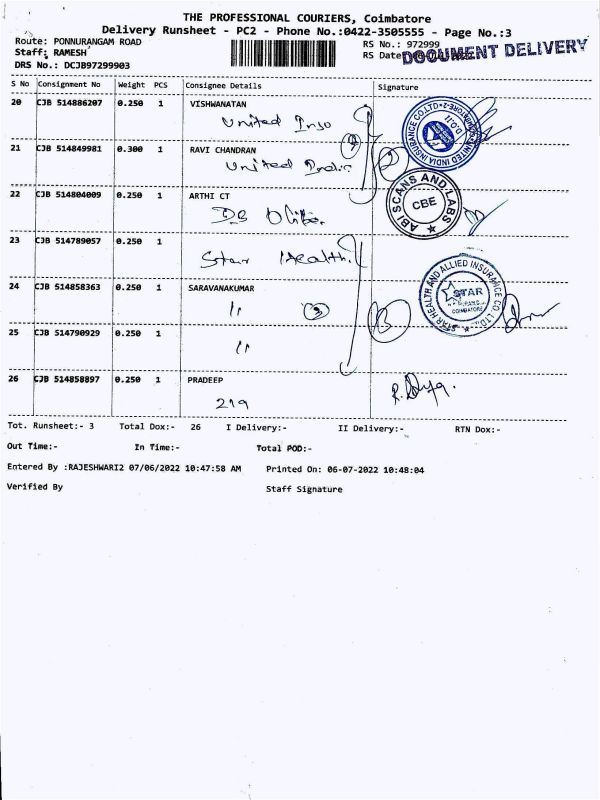 THE PROFESSIONAL COURIERS, Coimbatore
Delivery Runsheet - PC2 - Phone No.:0422-3505555 - Page No.:3
Route: PONNURANGAM ROAD RS No.: 972999
Staff: RAMESH RS Date:
DOCUMENT DELIVERY
DRS No.: DCJB97299903
S No Consignment No Weight PCS Consignee Details Signature
20 CJB 514886207 0.250 1 VISHWANATAN
United Insu
21 CJB 514849981 0.300 1 RAVI CHANDRAN
United India
22 CJB 514804009 0.250 1 ARTHI CT
DB
23 CJB 514789057 0.250 1
Star Health.
24 CJB 514858363 0.250 1 SARAVANAKUMAR
11 3
25 CJB 514790929 0.250 1
11
26 CJB 514858897 0.250 1 PRADEEP
219
UNITED INDIA INSURANCE CO.LTD.
D.O.II
ABI SCANS AND LABS
CBE
STAR HEALTH AND ALLIED INSURANCE CO. LTD.
STAR
COIMBATORE
Tot. Runsheet:- 3 Total Dox:- 26 I Delivery:- II Delivery:- RTN Dox:-
Out Time:- In Time:- Total POD:-
Entered By :RAJESHWARI2 07/06/2022 10:47:58 AM Printed On: 06-07-2022 10:48:04
Verified By Staff Signature